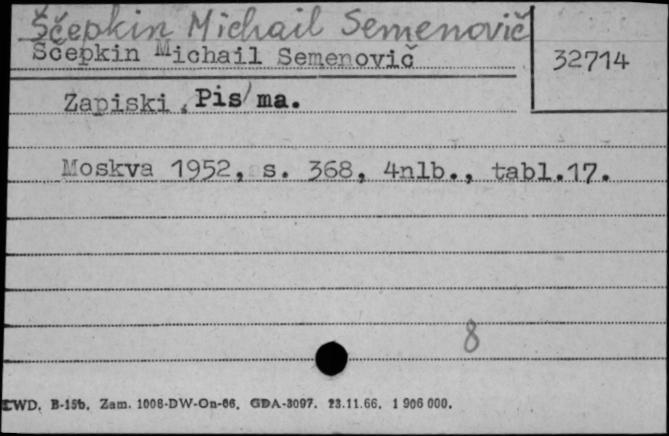 Ščepkin Michail Semenovič
Ščepkin Michail Semenovič
32714
Zapiski, Pis'ma.
Moskva 1952, s. 368, 4nlb., tabl.17.
8
LWD. B-15b. Zam. 1008-DW-On-66. GDA-3097. 23.11.66. 1 906 000.